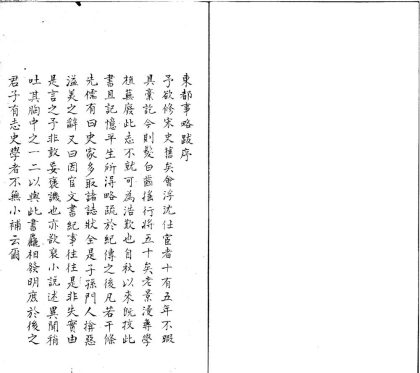 東都事略跋序
予欲修宋史舊矣會浮沈仕宦者十有五年不暇
具稾訖今則髮白齒搖行將五十矣老景漫尋學
植蕪廢此志不就可為浩歎也自秋以來阮挍此
書且記憶半生所得略疏於紀傳之後凡若干條
先儒有曰史家多取諸誌狀全是子孫門人掩惡
溢美之辭又曰因官文書紀事往往是非失實由
是言之予非敢妄褒譏也亦欲裒小說述異聞稍
吐其胸中之一二以與此書麤相發明庶於後之
君子有志史學者不無小補云爾